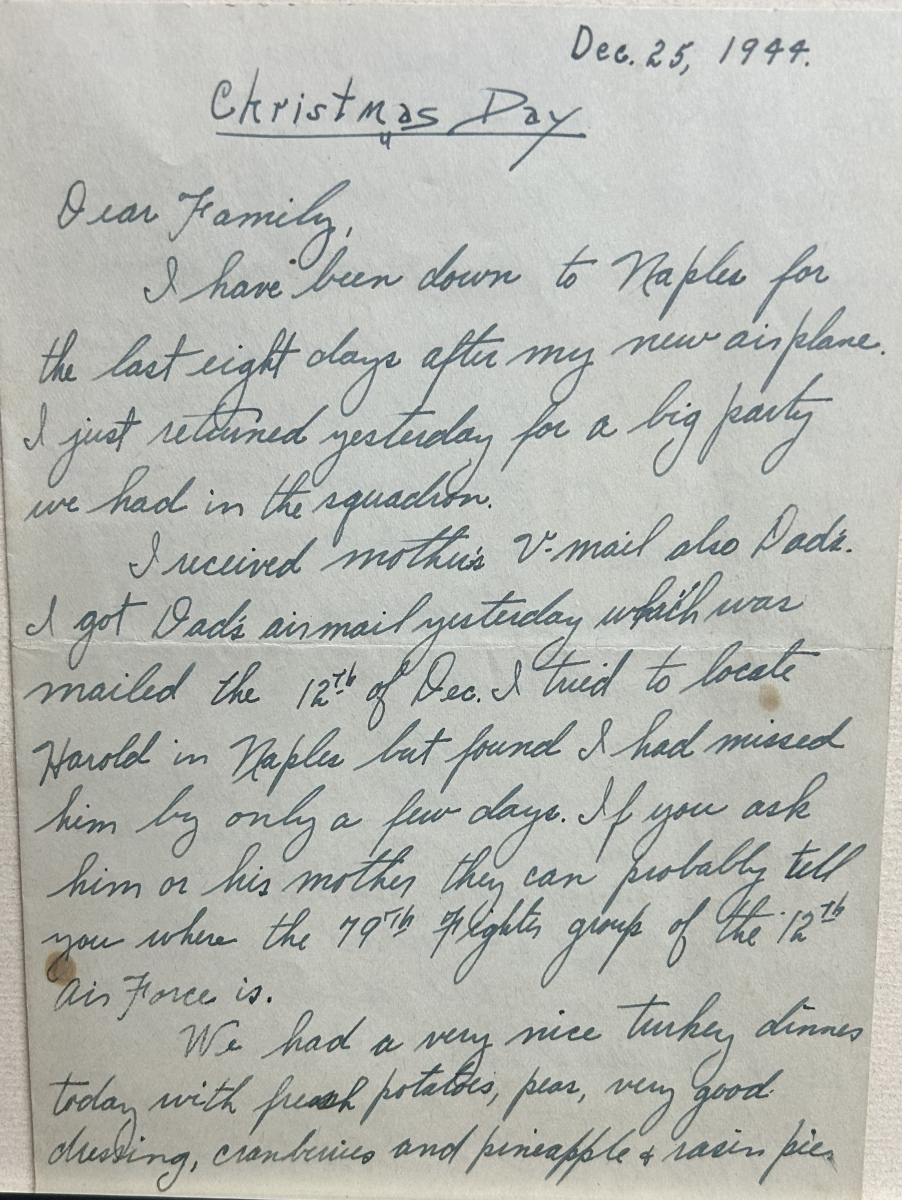 Dec. 25, 1944.
Christmas Day
Dear Family,
I have been down to Naples for
the last eight days after my new airplane.
I just returned yesterday for a big party
we had in the squadron.
I received mother's V-mail also Dad's.
I got Dad's airmail yesterday which was
mailed the 12th of Dec. I tried to locate
Harold in Naples but found I had missed
him by only a few days. If you ask
him or his mother they can probably tell
you where the 79th Fighter group of the 12th
Air Force is.
We had a very nice turkey dinner
today with fresh potatoes, peas, very good
dressing, cranberries and pineapple & rasin pie.